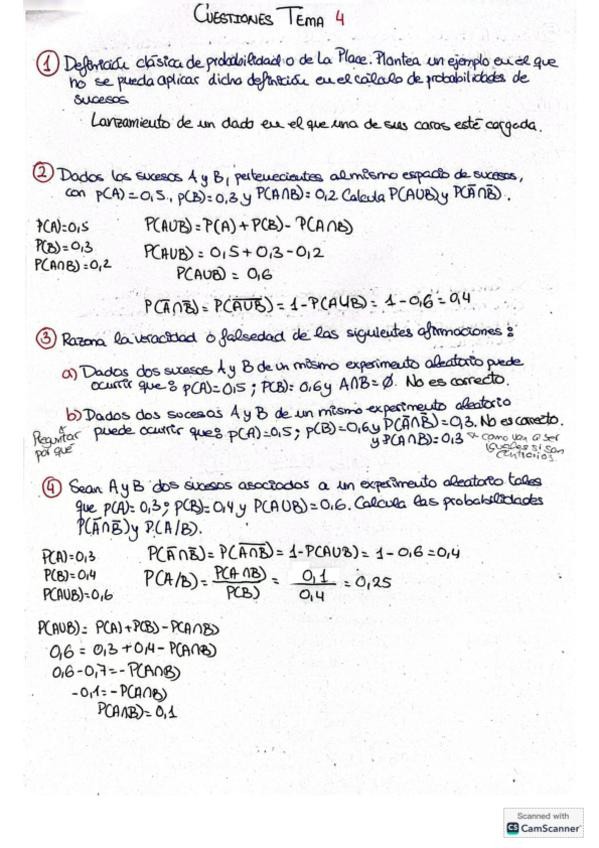 CUESTIONES TEMA 4
① Definición clásica de probabilidad o de La Place. Plantea un ejemplo en el que
no se pueda aplicar dicha definición en el cálculo de probabilidades de
sucesos.
Lanzamiento de un dado en el que una de sus caras esté cargada.
② Dados los sucesos A y B, pertenecientes al mismo espacio de sucesos,
con p(A)=0,5., p(B)=0,3 y P(A∩B)=0,2 Calcula P(AUB) y P(A̅∩B̅).
P(A)=0,5
P(B)=0,3
P(A∩B)=0,2
P(AUB)=P(A)+P(B)-P(A∩B)
P(AUB)=0,5+0,3-0,2
P(AUB)=0,6
P(A̅∩B̅)=P(A̅U̅B̅)=1-P(AUB)=1-0,6=0,4
③ Razona la veracidad o falsedad de las siguientes afirmaciones:
a) Dados dos sucesos A y B de un mismo experimento aleatorio puede
ocurrir que: p(A)=0,5; p(B)=0,6 y A∩B=Ø. No es correcto.
b) Dados dos sucesos A y B de un mismo experimento aleatorio
puede ocurrir que: p(A)=0,5; p(B)=0,6 y P(A̅∩B̅)=0,3. No es correcto.
y P(A∩B)=0,3
Preguntar
por qué
como van a ser
iguales si son
contrarios
④ Sean A y B dos sucesos asociados a un experimento aleatorio tales
que p(A)=0,3; p(B)=0,4 y P(AUB)=0,6. Calcula las probabilidades
P(A̅∩B̅) y P(A/B).
P(A)=0,3
P(B)=0,4
P(AUB)=0,6
P(A̅∩B̅)=P(A̅∩̅B̅)=1-P(AUB)=1-0,6=0,4
P(A/B)=P(A∩B)/P(B)=0,1/0,4=0,25
P(AUB)=P(A)+P(B)-P(A∩B)
0,6=0,3+0,4-P(A∩B)
0,6-0,7=-P(A∩B)
-0,1=-P(A∩B)
P(A∩B)=0,1
Scanned with
CS CamScanner